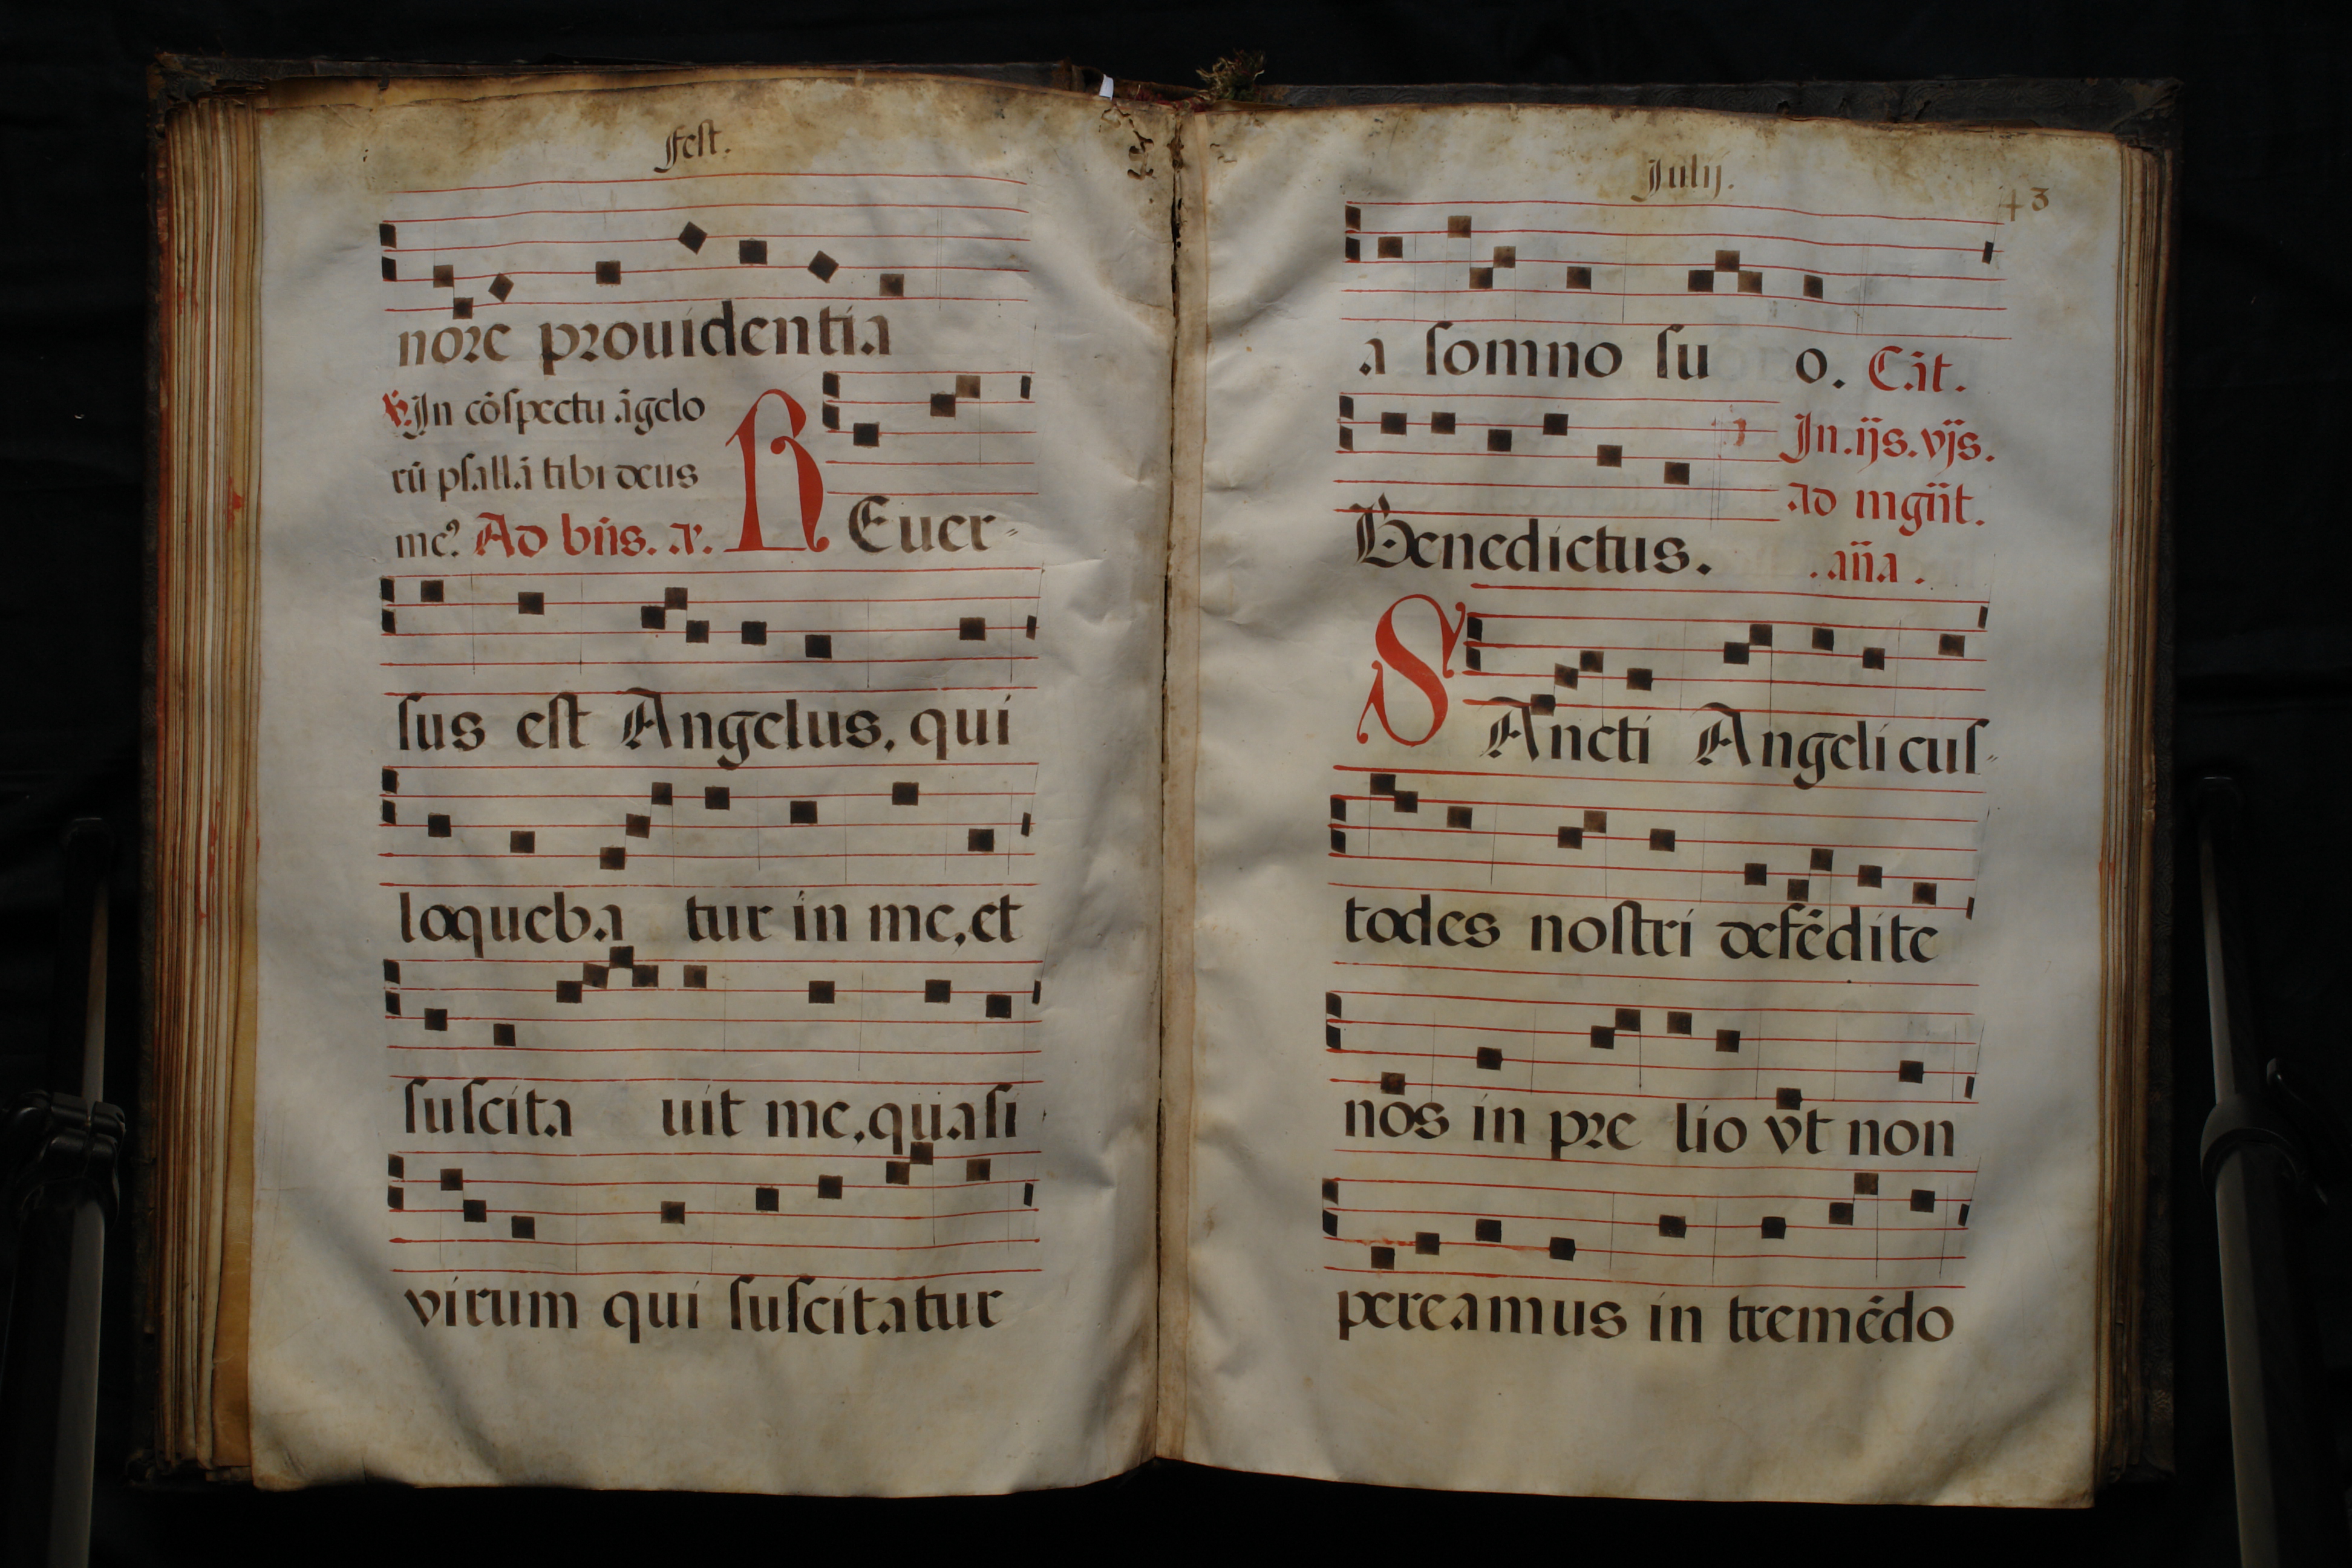 Fest.
nore prouidentia
℣. In cōspectu āgelo
rū psallā tibi deus
me? Ad bn̄s. a.
REuer-
sus est Angelus, qui
loqueba tur in me, et
suscita uit me, quasi
virum qui suscitatur
Julij.
43
a somno su o. Cāt.
Benedictus.
In. ijs. vjs.
ad mgn̄t.
.an̄a.
SAncti Angeli cus-
todes nostri defēdite
nos in pre lio vt non
pereamus in tremēdo